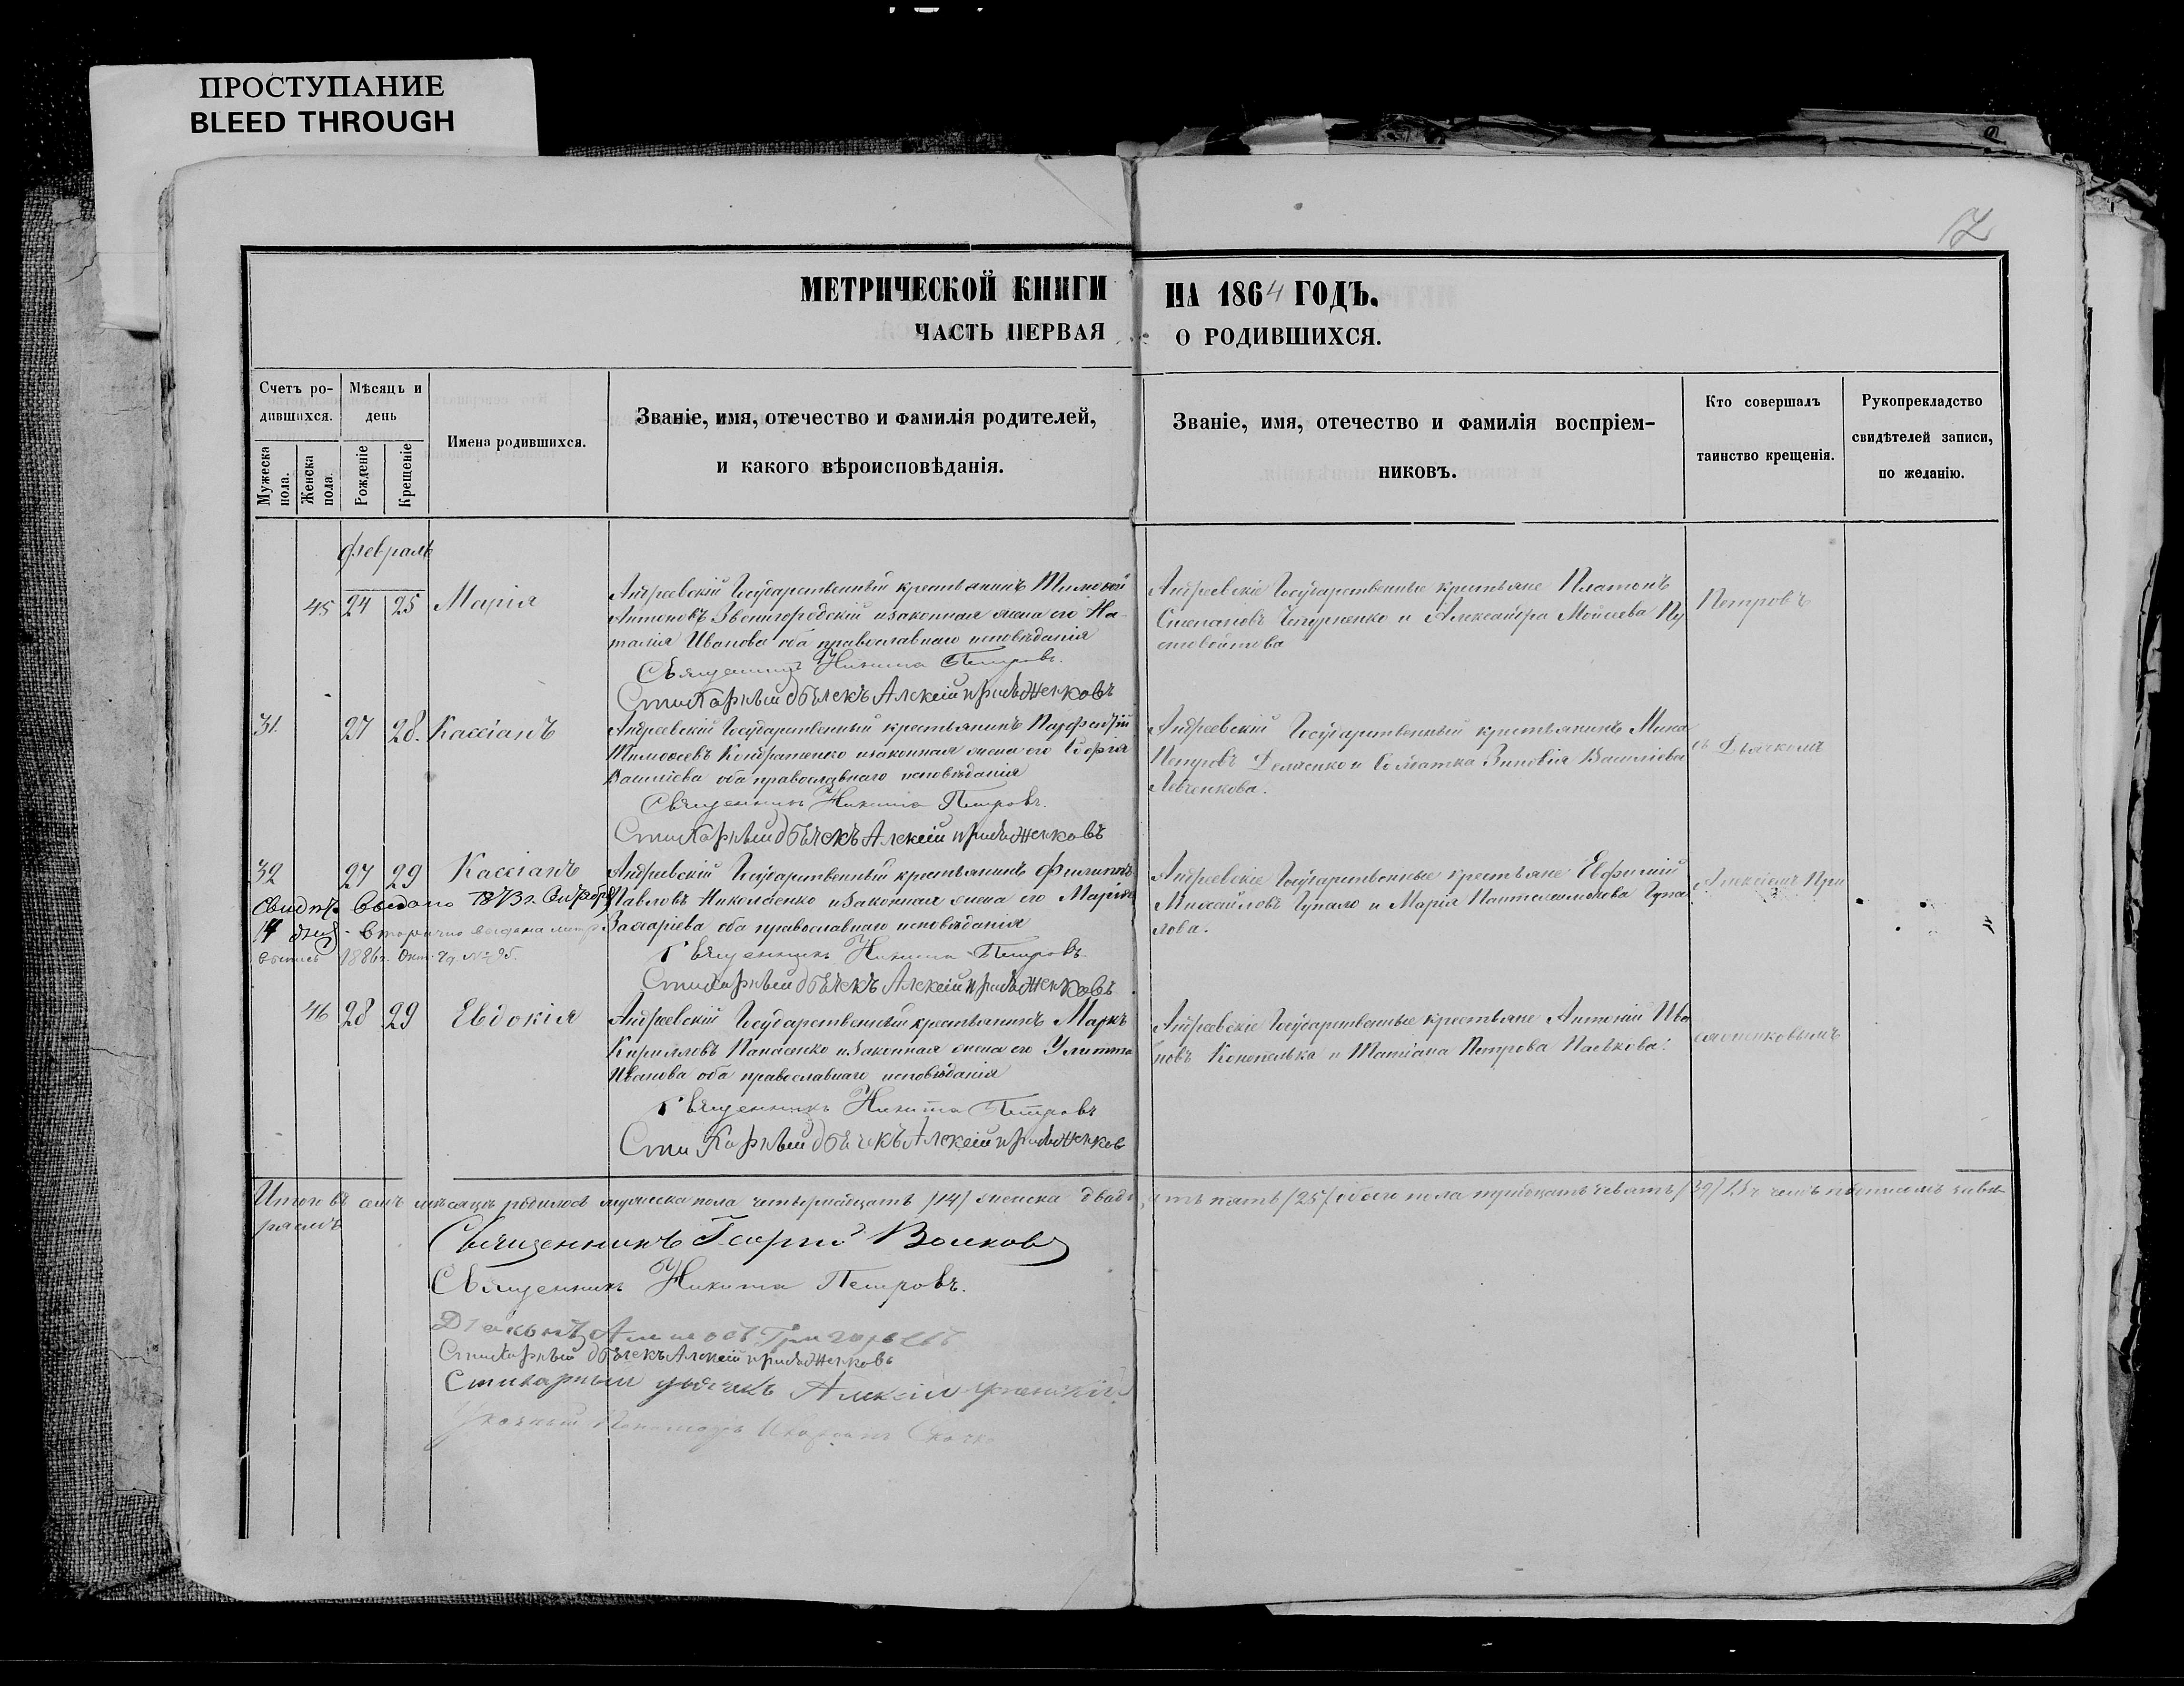 ПРОСТУПАНИЕ
BLEED THROUGH
12
МЕТРИЧЕСКОЙ КНИГИ НА 1864 ГОДЪ.
ЧАСТЬ ПЕРВАЯ О РОДИВШИХСЯ.
Счетъ ро-
дившихся.
Мужеска пола.
Женска пола.
Мѣсяцъ и
день
Рожденіе
Крещеніе
Имена родившихся.
Званіе, имя, отечество и фамилія родителей,
и какого вѣроисповѣданія.
Званіе, имя, отечество и фамилія воспріем-
никовъ.
Кто совершалъ
таинство крещенія.
Рукопрекладство
свидѣтелей записи,
по желанію.
февраль
45 24 25 Марія
Андреевскій Государственный крестьянинъ Тимофей
Антоновъ Звенигородскій и законная жена его На-
талія Иванова оба православнаго исповѣданія
Священникъ Никита Петровъ.
Стихарный дьячекъ Алексій
Андреевскіе Государственные крестьяне Платонъ
Степановъ и Александра Моисеева Пу
стовойтова
Петровъ
31. 27 28. Кассіанъ
Андреевскій Государственный крестьянинъ
Тимофеевъ Кондратенко и законная жена его Софія
Василіева оба православнаго исповѣданія
Священникъ Никита Петровъ.
Стихарный дьячекъ Алексій
Андреевскій Государственный крестьянинъ
Петровъ и Солдатка Зиновія Василіева
Левченкова.
съ Дьячкомъ
32 27 29 Кассіанъ
Андреевскій Государственный крестьянинъ Филиппъ
Павловъ Николаенко и законная жена его Марія
Захаріева оба православнаго исповѣданія
Священникъ Никита Петровъ
Стихарный дьячекъ Алексій
Андреевскіе Государственные крестьяне Евфимій
Михайловъ Чупало и Марія Пантелеимонова Чупа
лова.
Алексіемъ При
выдано
14 дня вторично выдана
1886 г. Окт.
46 28 29 Евдокія
Андреевскій Государственный крестьянинъ Маркъ
Кирилловъ Панасенко и законная жена его Улитта
Иванова оба православнаго исповѣданія
Священникъ Никита Петровъ
Стихарный дьячекъ Алексій
Андреевскіе Государственные крестьяне Антоній Ива
новъ Конопелька и Татіана Петрова
Итого въ семъ мѣсяцѣ родилось мужеска пола четырнадцать /14/ женска двадцать пять /25/ обоего пола тридцать девять /39/
Священникъ Георгій Волковъ
Священникъ Никита Петровъ.
Стихарный дьячекъ Алексій
Стихарный дьячекъ Алексій
Пономарь